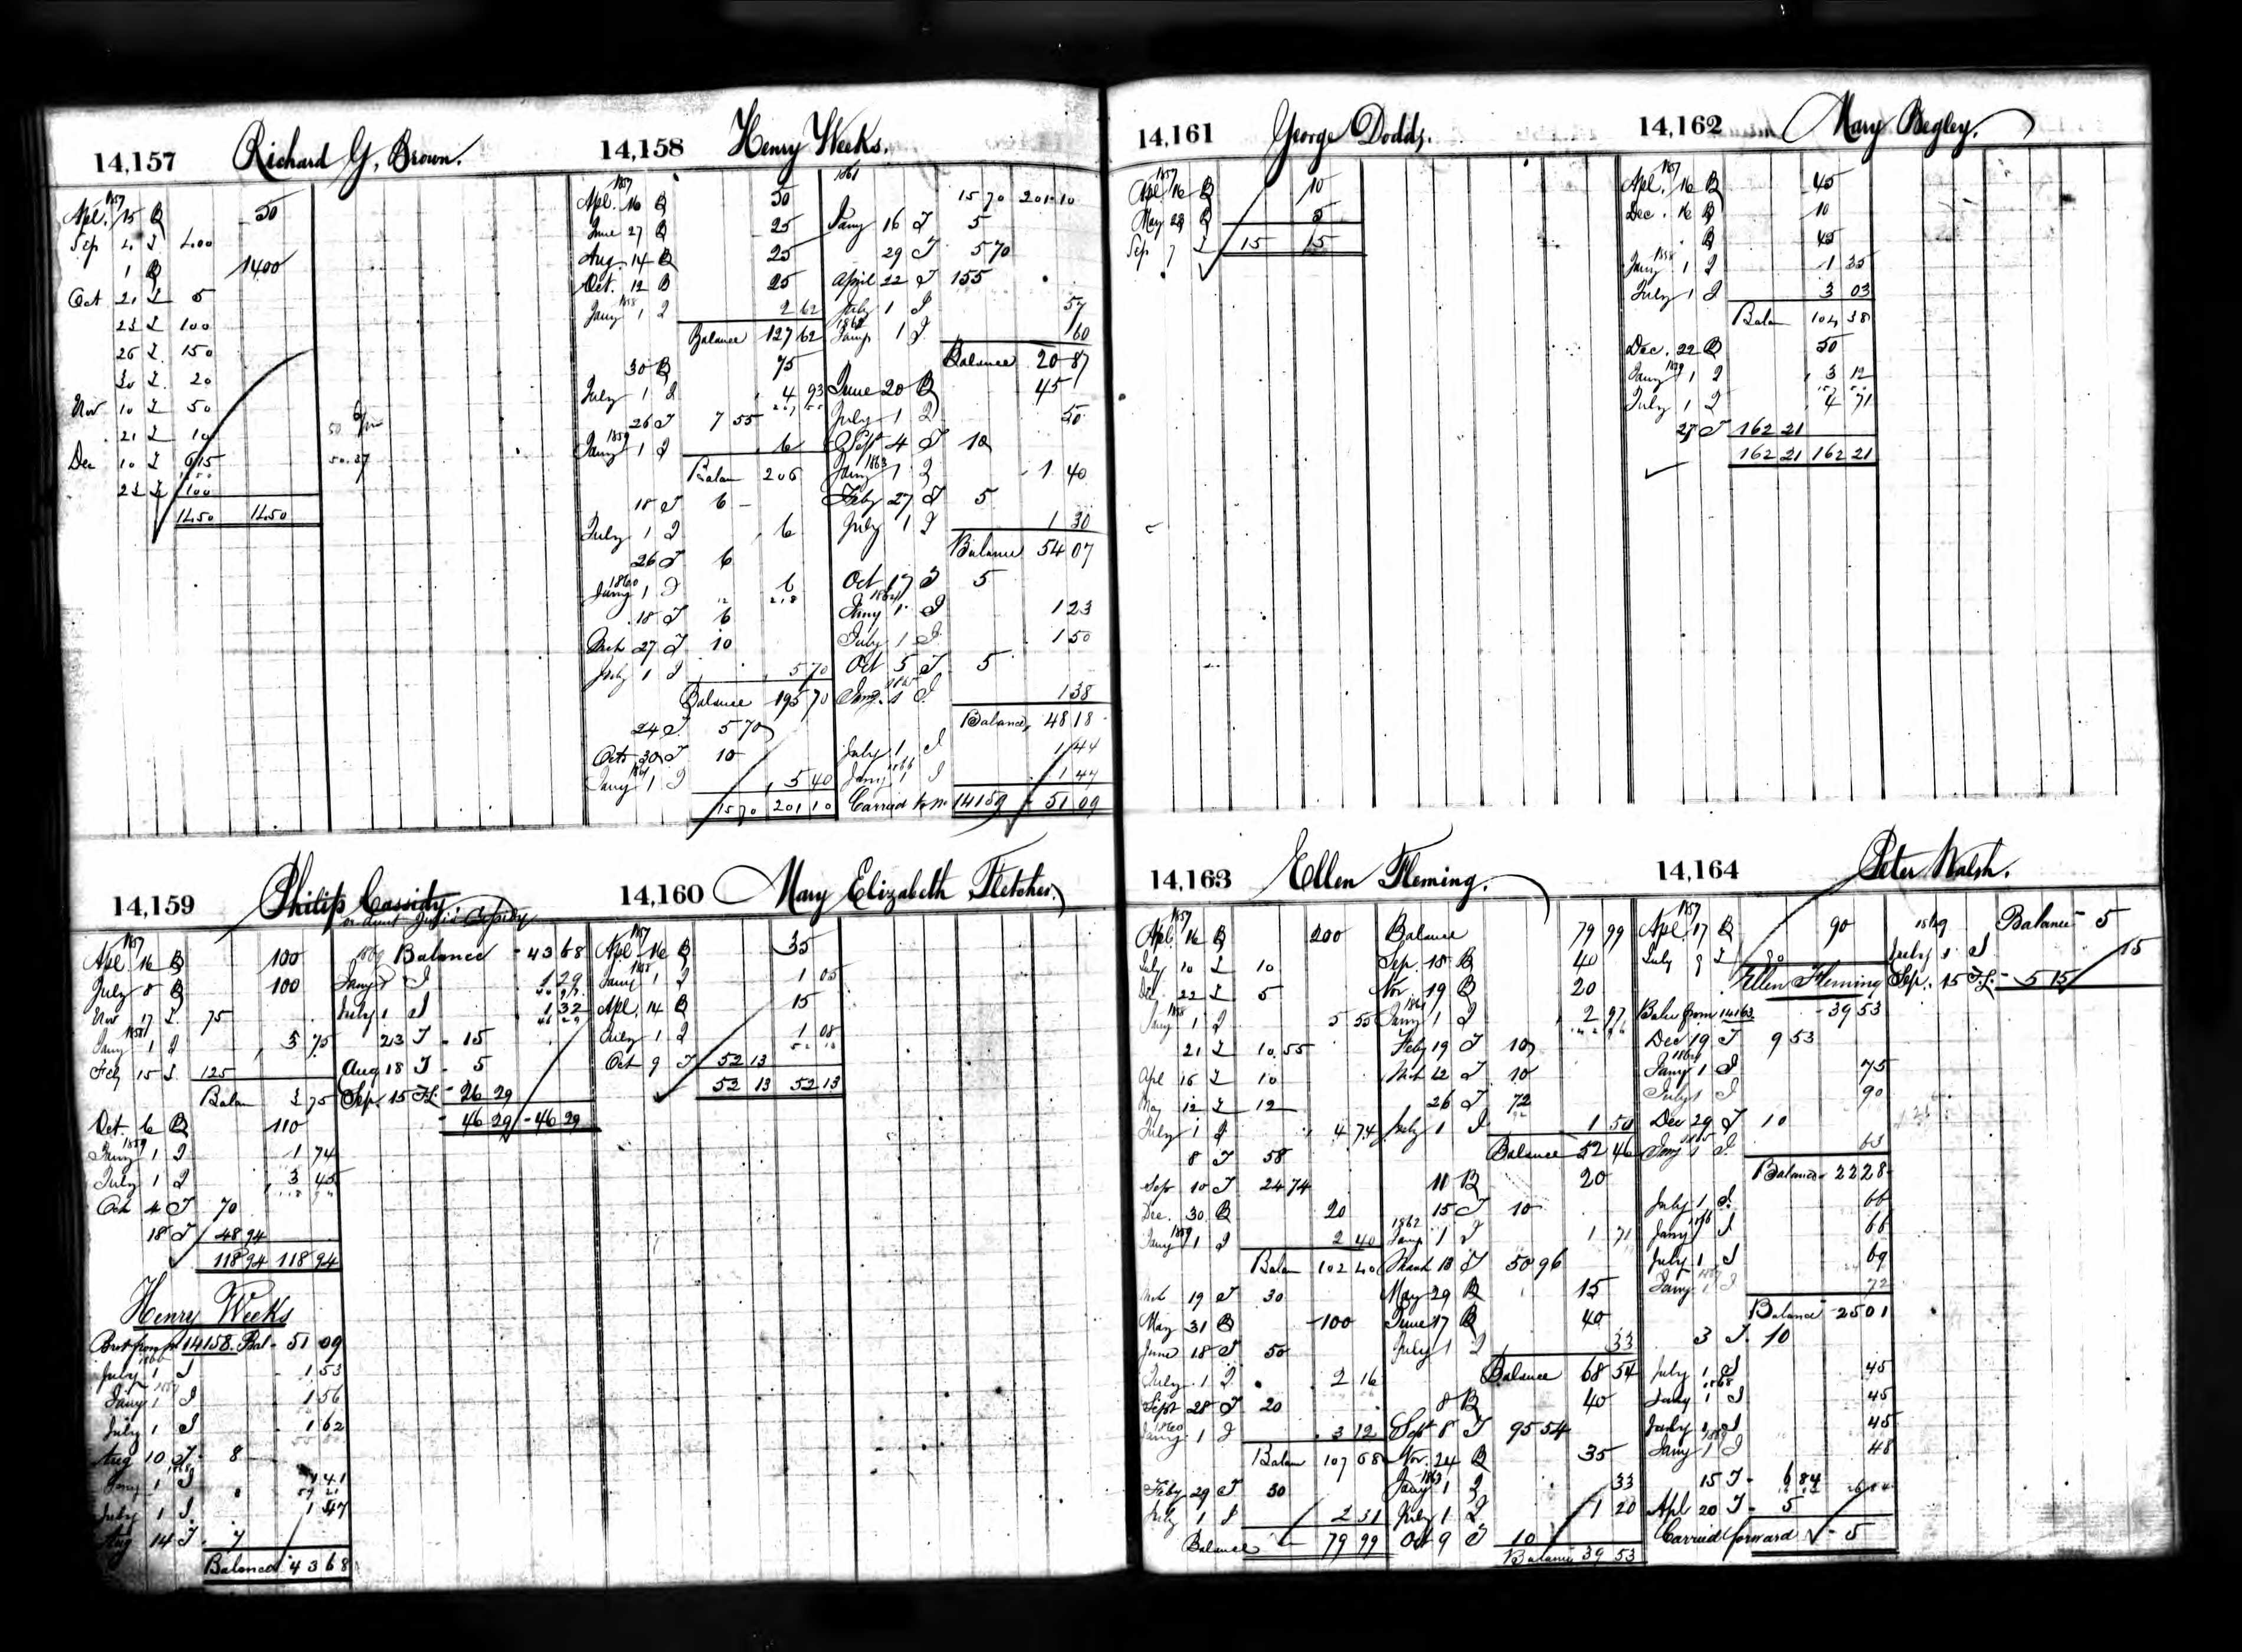 14,157 Richard G. Brown.
1857
Apl. 15 B 50
Sep 4 I 400
1 B 1400
Oct 21 I 5
23 I 100
26 I 150
30 I 20
Nov 10 I 50
21 I 10
Dec 10 I 615
23 I 100
1450 1450
14,158 Henry Weeks.
1857
Apl. 16 B 50
June 27 B 25
Aug. 14 B 25
Oct. 12 B 25
1858
Jany 1 I 2 62
Balance 127 62
30 B 75
July 1 I 4 93
26 I 7 55
1859
Jany 1 I 6
Balan 206
18 I 6
July 1 I 6
26 I 6
1860
Jany 1 I 6
18 I 6
Mch 27 I 10
July 1 I 5 70
Balance 195 70
24 I 5 70
Oct 30 I 10
1861
Jany 1 I 5 40
15 70 201 10
1861
15 70 201 10
Jany 16 I 5
29 I 5 70
April 22 I 155
July 1 I 57
1862
Jany 1 I 60
Balance 20 87
June 20 B 45
July 1 I 50
Sept 4 I 10
1863
Jany 1 I 1 40
Feby 27 I 5
July 1 I 1 30
Balance 54 07
Oct 17 I 5
1864
Jany 1 I 1 23
July 1 I 1 50
Oct 5 I 5
1865
Jany. 1 I 1 38
Balance, 48 18
July 1 I 1 44
1866
Jany 1 I 1 47
Carried to No 14159 51 09
14,159 Philip Cassidy.
1857
Apl 16 B 100
July 8 B 100
Nov 17 I 75
1858
Jany 1 I 3 75
Feb 15 I 125
Balan 3 75
Oct 6 B 110
1859
Jany 1 I 1 74
July 1 I 3 45
Oct 4 I 70
18 I 48 94
118 94 118 94
Henry Weeks
Brot from No 14158. Bal- 51 09
1866
July 1 I 1 53
1867
Jany 1 I 1 56
July 1 I 1 62
Aug 10 I 8
1868
Jany 1 I 1 41
July 1 I 1 47
Aug 14 I 7
Balance 43 68
1869 Balance 43 68
Jany 1 I 1 29
July 1 I 1 32
23 I 15
Aug 18 I 5
Sep. 15 26 29
46 29 46 29
14,160 Mary Elizabeth Fletcher
1857
Apl 16 B 35
1858
Jany 1 I 1 05
Apl. 14 B 15
July 1 I 1 08
Oct 9 I 52 13
52 13 52 13
14,161 George Dodds.
1857
Apl 16 B 10
May 28 B 5
Sep 7 I 15 15
14,162 Mary Begley.
1857
Apl. 16 B 45
Dec. 16 B 10
B 45
1858
Jany 1 I 1 35
July 1 I 3 03
Balan 104 38
Dec. 22 B 50
1859
Jany 1 I 3 12
July 1 I 4 71
27 I 162 21
162 21 162 21
14,163 Ellen Fleming.
1857
Apl. 16 B 200
July 10 I 10
Dec 22 I 5
1858
Jany 1 I 5 55
21 I 10 55
Apl 16 I 10
May 12 I 12
July 1 I 4 74
8 I 58
Sep 10 I 24 74
Dec. 30 B 20
1859
Jany 1 I 2 40
Balan 102 40
Mch 19 I 30
May 31 B 100
June 18 I 50
July 1 I 2 16
Sept 28 I 20
1860
Jany 1 I 3 12
Balan 107 68
Feby 29 I 30
July 1 I 2 31
Balance 79 99
Balance 79 99
Sep. 18 B 40
Nov. 19 B 20
1861
Jany 1 I 2 97
Feby 19 I 10
Mch 12 I 10
26 I 72
July 1 I 1 50
Balance 52 46
11 B 20
15 I 10
1862
Jany 1 I 1 71
March 18 I 50 96
May 29 B 15
June 17 B 40
July 1 I 33
Balance 68 54
8 B 40
Sept 8 I 95 54
Nov. 24 B 35
1863
Jany 1 I 33
July 1 I 1 20
Oct 9 I 10
Balance 39 53
14,164 Peter Walsh.
1857
Apl. 17 B 90
July 9 I 90
Ellen Fleming
Balce from 14163 39 53
Dec 19 I 9 53
1864
Jany 1 I 75
July 1 I 90
Dec 29 I 10
1865
Jany 1 I 63
Balance 22 28
July 1 I 66
1866
Jany 1 I 66
July 1 I 69
1867
Jany 1 I 72
Balance 25 01
3 I 10
July 1 I 45
1868
Jany 1 I 45
July 1 I 45
1869
Jany 1 I 48
15 I 6 84
Apl 20 I 5
Carried forward 5
1869 Balance 5
July 1 I 15
Sep. 15 5 15